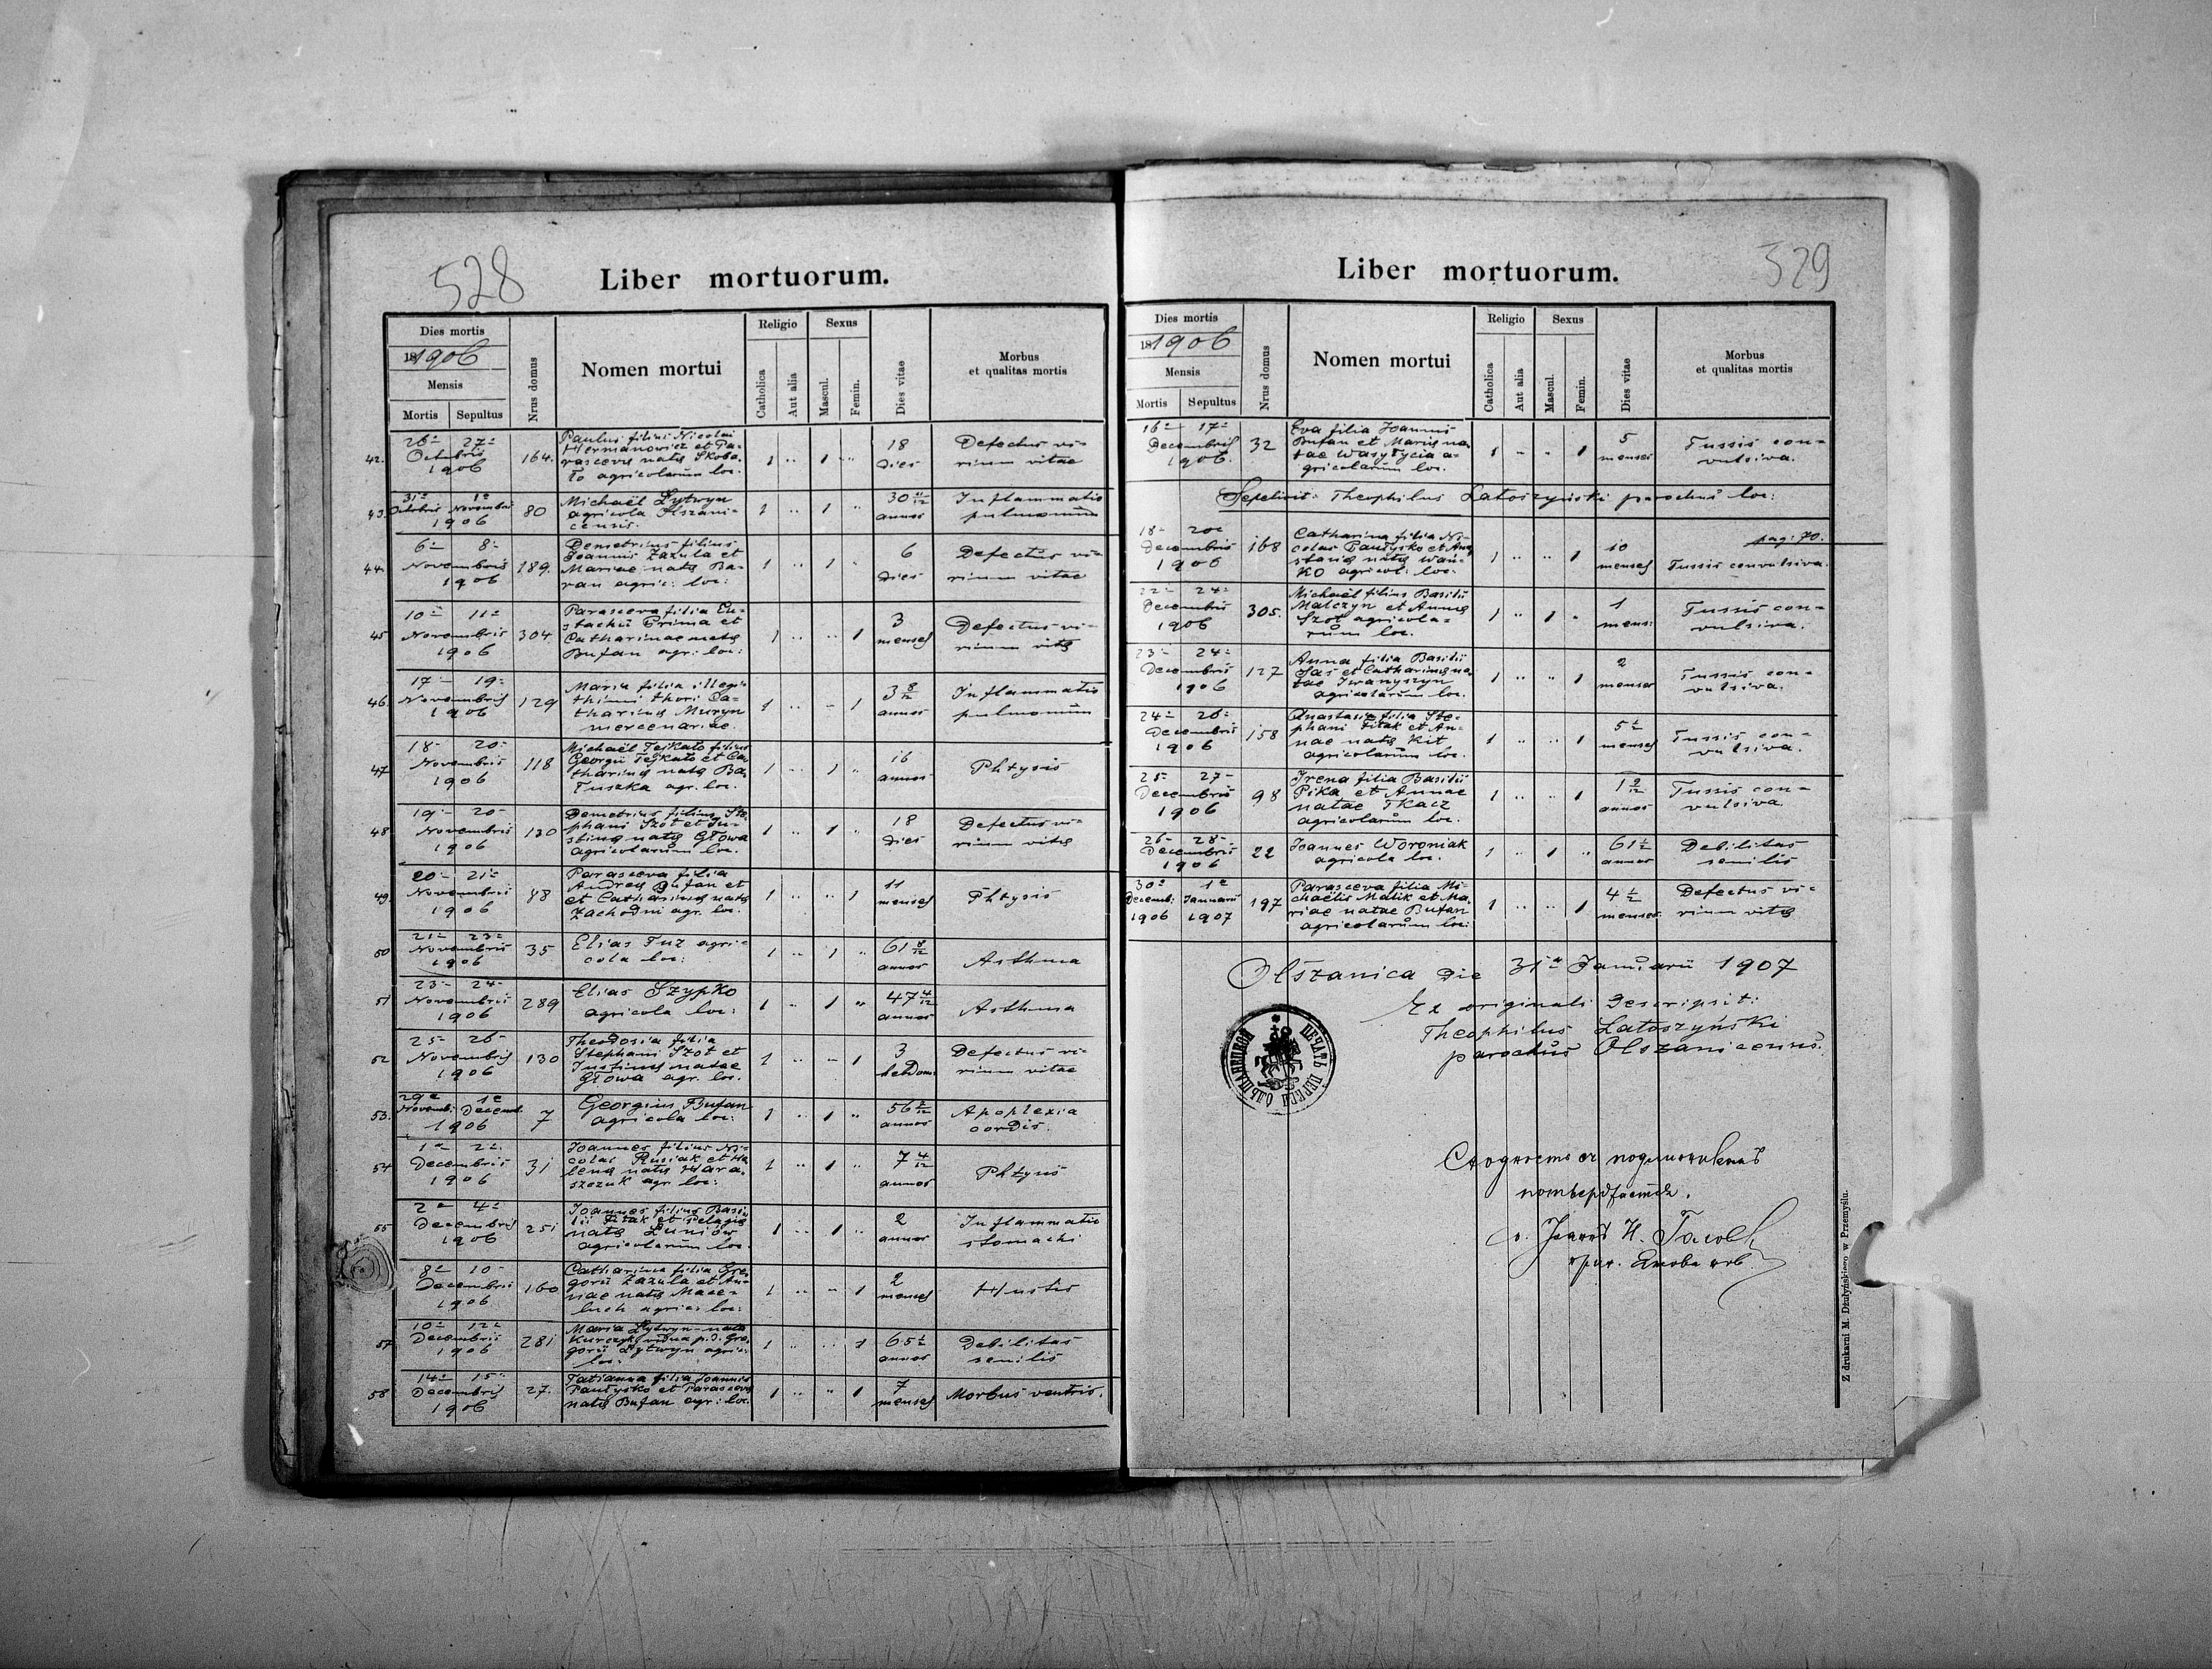 528
Liber mortuorum.
Dies mortis
181906
Mensis
Mortis Sepultus
Nrus domus
Nomen mortui
Religio
Catholica
Aut alia
Sexus
Mascul.
Femin.
Dies vitae
Morbus
et qualitas mortis
42. 26a 27a
Octobris
1906
164.
Paulus filius Nicolai
Hermanowicz et Pa-
rascevę natę Skoba-
To agricolarum loc.
1 .. 1 ..
18
dies
Defectus vi-
rium vitae
43. 31a 1a
Octobris Novembris
1906
80
Michaël Lytwyn
agricola Olszani-
censis.
1 .. 1 ..
30 11/12
annos
Inflammatio
pulmonum
44. 6a 8a
Novembris
1906
189.
Demetrius filius
Joannis Zazula et
Mariae natę Ba-
ran agric: loc:
1 .. 1 ..
6
dies
Defectus vi-
rium vitae
45 10a 11a
Novembris
1906
304
Parasceva filia Eu-
stachii Prima et
Catharinae natę
Bufan agr: loc:
1 .. .. 1
3
menses
Defectus vi-
rium vitę
46. 17a 19a
Novembris
1906
129
Maria filia illegi-
thimi thori Ca-
tharinę Muryn
mercenariae.
1 .. .. 1
3 8/12
annos
Inflammatio
pulmonum
47 18- 20-
Novembris
1906
118
Michaël Tejkało filius
Georgii Tejkało et Ca-
tharinę natę Ba-
Tuszka agr. loc.
1 .. 1 ..
16
annos
Phtysis
48 19- 20-
Novembris
1906
130
Demetrius filius Ste-
phani Szot et Ju-
stinę natę Głowa
agricolarum loc.
1 .. 1 ..
18
dies
Defectus vi-
rium vitę
49 20- 21a
Novembris
1906
88
Parasceva filia
Andreę Bufan et
et Catharinę natę
Zachodni agr. loc.
1 .. .. 1
11
menses
Phtysis
50 21- 23-
Novembris
1906
35
Elias Tuz agri-
cola loc:
1 .. 1 ..
61 8/12
annos
Asthma
51 23- 24-
Novembris
1906
289
Elias Szypko
agricola loc:
1 .. 1 ..
47 4/12
annos
Asthma
52 25- 26-
Novembris
1906
130
Theodosia filia
Stephani Szot et
Justinę natae
Głowa agr. loc.
1 .. .. 1
3
hebdom.
Defectus vi-
rium vitae
53. 29a 1a
Novemb: Decemb.
1906
7
Georgius Bufan
agricola loc:
1 .. 1 ..
annos
Apoplexia
cordis.
54 1a 2a
Decembris
1906
31
Joannes filius Ni-
colai Rusiak et He-
lenę natę Hara-
szczuk agr. loc:
1 .. 1 ..
7 4/12
annos
Phtysis
55 2a 4a
Decembris
1906
251
Joannes filius Basi-
lii Fitak et Pelagię
natę Luniów
agricolarum loc.
1 .. 1 ..
2
annos
Inflammatio
stomachi
8a 10-
Decembris
1906
160
Catharina filia Gre-
gorii Zazula et An-
nae natę Mace-
luch agric: loc:
1 .. .. 1
2
menses
57 10a 12a
Decembris
1906
281
Maria Lytwyn nata
Kurczyk vidua p.d. Gre-
gorii Lytwyn agric:
loc:
1 .. .. 1
65 ½
annos
Debilitas
senilis
58 14a 15-
Decembris
1906
27.
Tatianna filia Joannis
Paułysko et Parascevę
natę Bufan agr: loc.
1 .. .. 1
7
menses
Morbus ventris.
529
Liber mortuorum.
Dies mortis
181906
Mensis
Mortis Sepultus
Nrus domus
Nomen mortui
Religio
Catholica
Aut alia
Sexus
Mascul.
Femin.
Dies vitae
Morbus
et qualitas mortis
16a 17a
Decembris
1906.
32
Eva filia Joannis
Bufan et Marię na-
tae Wasyłycia a-
gricolarum loc.
1 - - 1
5
menses
Tussis con-
vulsiva.
Sepelivit: Theophilus Latoszyński parochus loc:
pag: 70.
18- 20a
Decembris
1906
168
Catharina filia Ni-
colai Paułysko et Ana-
stasię natę Wań-
ko agricol: loc.
1 .. .. 1
10
menses
Tussis convulsiva.
22- 24-
Decembris
1906
305.
Michaël filius Basilii
Malczyn et Annę
Szot agricola-
rum loc.
1 .. 1 ..
1
mens:
Tussis con-
vulsiva.
23- 24-
Decembris
1906
127
Anna filia Basilii
Sas et Catharinę na-
tae Iwanyszyn
agricolarum loc.
1 .. .. 1
2
menses
Tussis con-
vulsiva.
24- 26-
Decembris
1906
158
Anastasia filia Ste-
phani Fitak et An-
nae natę Kit
agricolarum loc.
1 .. .. 1
5 ½
menses
Tussis con-
vulsiva.
25- 27-
Decembris
1906
98
Irena filia Basilii
Pika et Annae
natae Tkacz
agricolarum loc.
1 .. .. 1
1 9/12
annos
Tussis con-
vulsiva
26- 28-
Decembris
1906
22
Joannes Woroniak
agricola loc.
1 .. 1 ..
61 ½
annos
Debilitas
senilis
30a 1a
Decemb: Januarii
1906 1907
197
Parasceva filia Mi-
chaëlis Malik et Ma-
riae natae Bufan
agricolarum loc:
1 .. .. 1
4 ½
menses
Defectus vi-
rium vitę
Olszanica die 31a Januarii 1907
Ex originali descripsit:
Theophilus Latoszyński
parochus Olszanicensis.
ПЕЧАТЬ ЦЕРКВИ ОЛЬШАНЕЦКОЙ
потверждается.
Z drukarni M. Dżułyńskiego w Przemyślu.